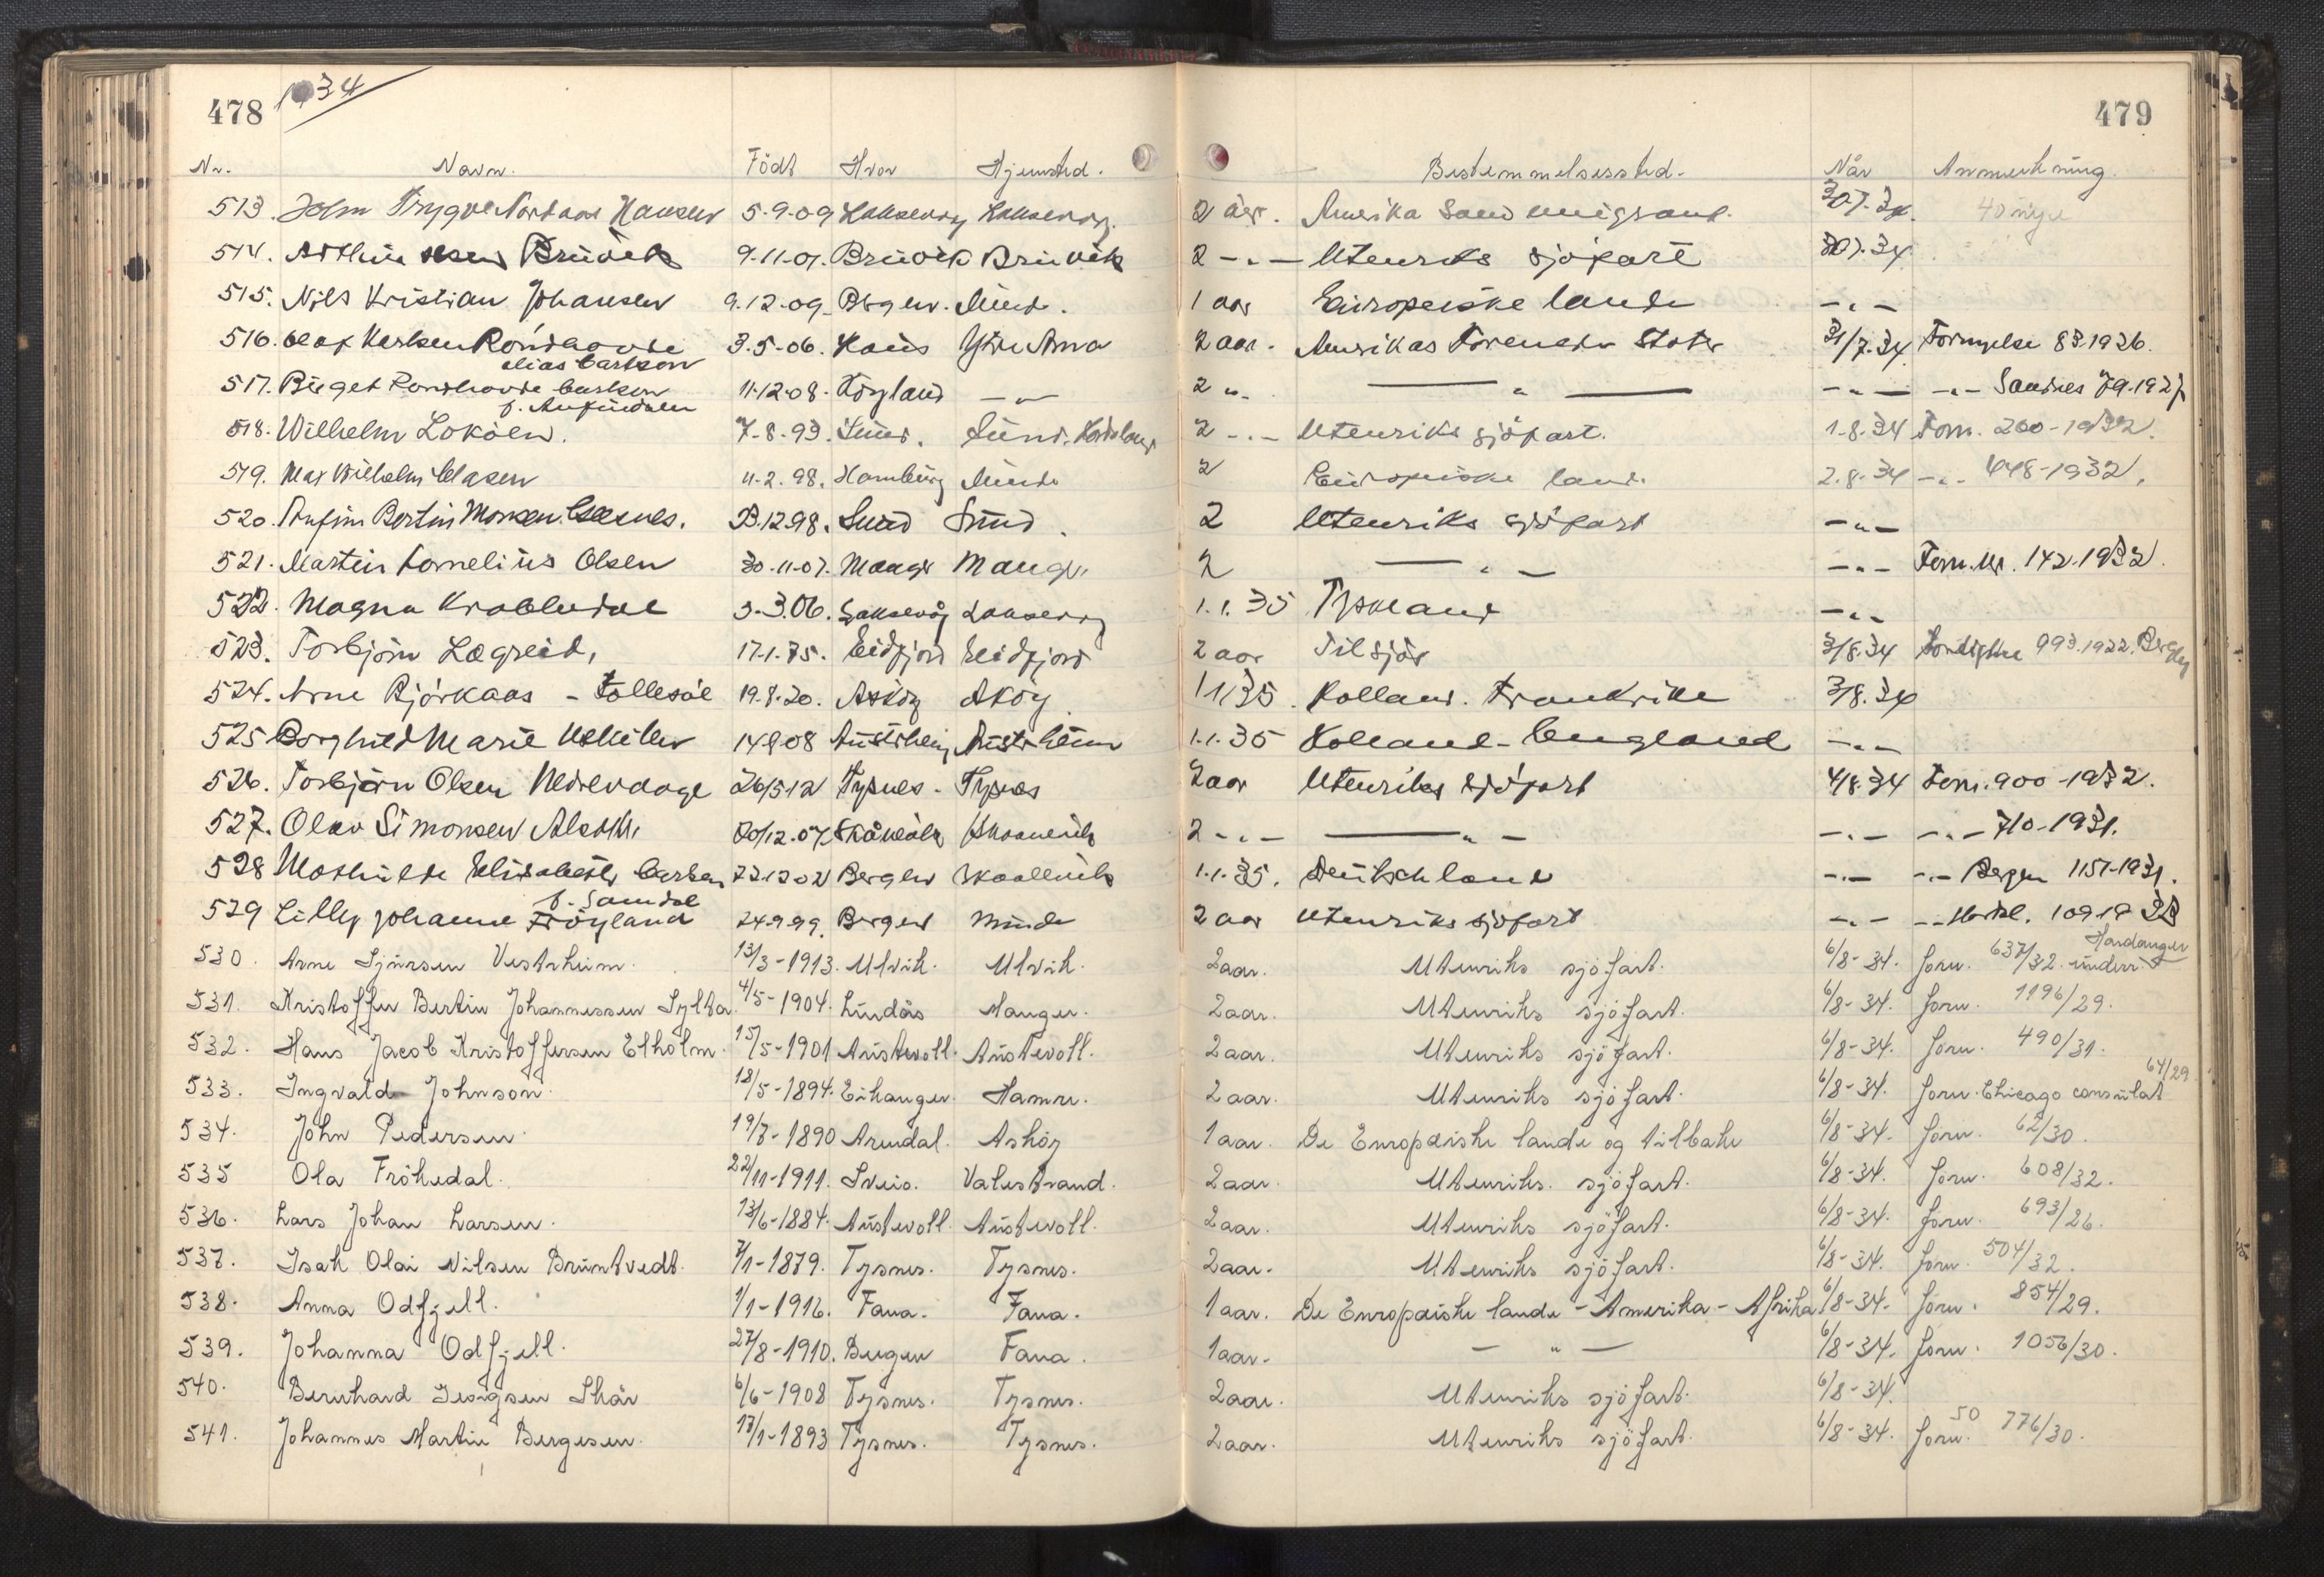 478 1934 479
Nr. Navn. Födt Hvor Hjemsted. Bestemmelsessted. Når Anmerkning.
513. John Trygve Hansen 5-9-09 Laksevåg Laksevåg. 2 år. Amerika som emigrant. 30.7.34. 40
514. Brüvik 9.11.07. Brüvik Brüvik 2 -"- Utenriks sjöfart 30.7.34
515. Nils Kristian Johansen 9.12.09. Bergen. Minde. 1 aar Europeiske lande -"-
516. Olaf Karlsen Rondhovde 3.5-06. Haus Ytre Arna 2 aar. Amerikas Forenede Stater 31/7.34 Fornyelse 83.1926.
alias Carlson
517. Birget Rondhovde Carlson 11.12.08. Högland -"- 2 "- -"- -"- -"- Sandnes 79.1927
f.
518. Wilhelm Loköen. 7-8-93. Sund. Sund. Hordaland 2 -"- Utenriks sjöfart. 1-8-34 Forn. 260-1932.
519. Max Wilhelm Clasen 11-2.98. Hamburg Minde 2 Europeiske land. 2.8.34 -"- 448-1932.
520. Anfinn Bertin Monsen 23.12.98. Sund Sund. 2 Utenriks sjöfart -"-
521. Martin Kornelius Olsen 30-11-07. Manger Manger. 2 -"- -"- Forn. Nr. 142.1932.
522. Magna Krabbedal 3-3.06. Laksevåg Laksevåg 1.1.35 Tyskland -"-
523. Torbjörn Lægreid. 17-1.75. Eidfjord Eidfjord 2 aar Til sjös 3/8.34 993.1922. Bergen
524. Arne Björkaas - Follesöe 19.8.20. Asköy Asköy. 1/1 35. Holland. Frankrike 3/8.34
525 Borghild Marie 14.8.08 Austrheim Austrheim 1.1.35 Holland - England -"-
526. Torbjörn Olsen Nedrevaage 26/5-12 Tysnes - Tysnes 2 aar Utenriks sjöfart 4/8.34 Forn. 900-1932.
527. Olav Simonsen 20/12.07. Skånevik Skaanevik 2 -"- -"- -"- -"- 710-1931.
528 Mathilde Elisabeth Carlsen 22.12.02 Bergen Skaanevik 1.1.35. Deutschland -"- -"- Bergen 1157-1931.
f. Samdal
529 Lilly Johanne Fröyland 24.9.99. Bergen Minde 2 aar Utenriks sjöfart -"- -"- 109.19
530. Arne Sjursen Vestrheim. 13/3-1913. Ulvik. Ulvik. 2 aar. Utenriks sjöfart. 6/8-34. forn. 637/32. Hardanger underr.
531. Kristoffer Bertin Johannessen Sylta. 4/5-1904. Lindås Manger. 2 aar. Utenriks sjöfart. 6/8-34. forn. 1196/29.
532. Hans Jacob Kristoffersen Elholm. 15/5-1901 Austevoll. Austevoll. 2 aar. Utenriks sjöfart. 6/8-34. forn. 490/31.
533. Ingvald Johnson. 18/5-1894. Eikanger. Hamre. 2 aar. Utenriks sjöfart. 6/8-34. forn. Chicago consulat 64/29
534. John Pedersen. 19/7-1890 Arendal. Asköy 1 aar. De Europæiske lande og tilbake 6/8-34. forn. 62/30.
535 Ola Frökedal. 22/11-1911. Sveio. Valestrand. 2 aar. Utenriks. sjöfart. 6/8-34. forn. 608/32.
536. Lars Johan Larsen. 13/6-1884. Austevoll. Austevoll. 2 aar. Utenriks sjöfart. 6/8-34. forn. 693/26.
537. Isak Olai Nilsen Bruntvedt. 7/1-1879. Tysnes. Tysnes. 2 aar. Utenriks sjöfart. 6/8-34. forn. 504/32.
538. Anna Odfjell. 1/1-1916. Fana. Fana. 1 aar. De Europæiske lande - Amerika - Afrika 6/8-34. forn. 854/29.
539. Johanna Odfjell. 27/8-1910. Bergen Fana. 1 aar. - " - 6/8-34. forn. 1056/30.
540. Bernhard Georgsen Skår 6/6-1908 Tysnes. Tysnes. 2 aar. Utenriks sjöfart. 6/8-34.
541. Johannes Martin Bergesen. 17/1-1893 Tysnes. Tysnes. 2 aar. Utenriks sjöfart. 6/8-34. forn. 50 776/30.